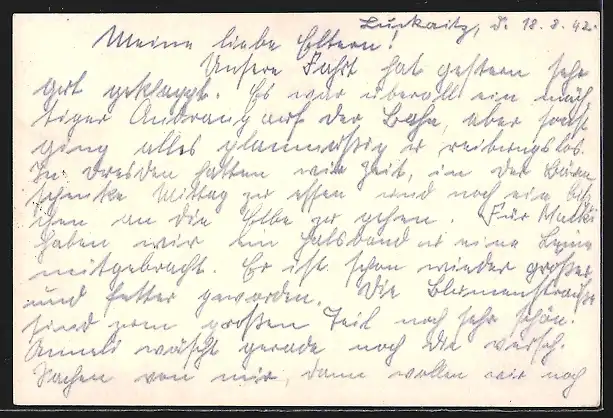 Luckaitz, d. 18.8.42.
Meine lieben Eltern!
Unsere Fahrt hat gestern sehr
gut geklappt. Es war überall ein mäch
tiger Andrang auf der Bahn, aber sonst
ging alles planmäßig u. reibungslos.
In Dresden hatten wir Zeit, in der Bären
schenke Mittag zu essen und noch ein bis
chen an die Elbe zu gehen. Für
haben wir ein Halsband u. eine Leine
mitgebracht. Er ist schon wieder größer
und fetter geworden. Die Blumensträuße
sind zum großen Teil noch sehr schön.
Anneli wäscht gerade noch die
Sachen von mir, dann wollen wir noch